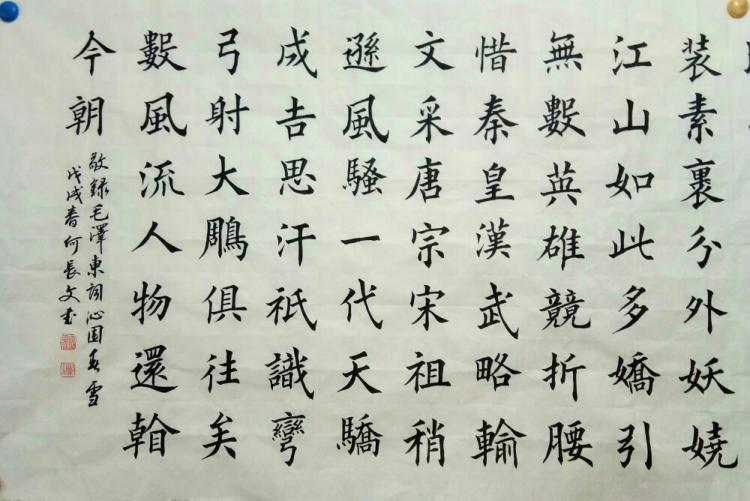 装素裹分外妖嬈
江山如此多嬌引
無數英雄競折腰
惜秦皇漢武略輸
文采唐宗宋祖稍
遜風騷一代天驕
成吉思汗祇識彎
弓射大鵰俱往矣
數風流人物還看
今朝
敬録毛澤東詞沁園春雪
戊戌春何長文書